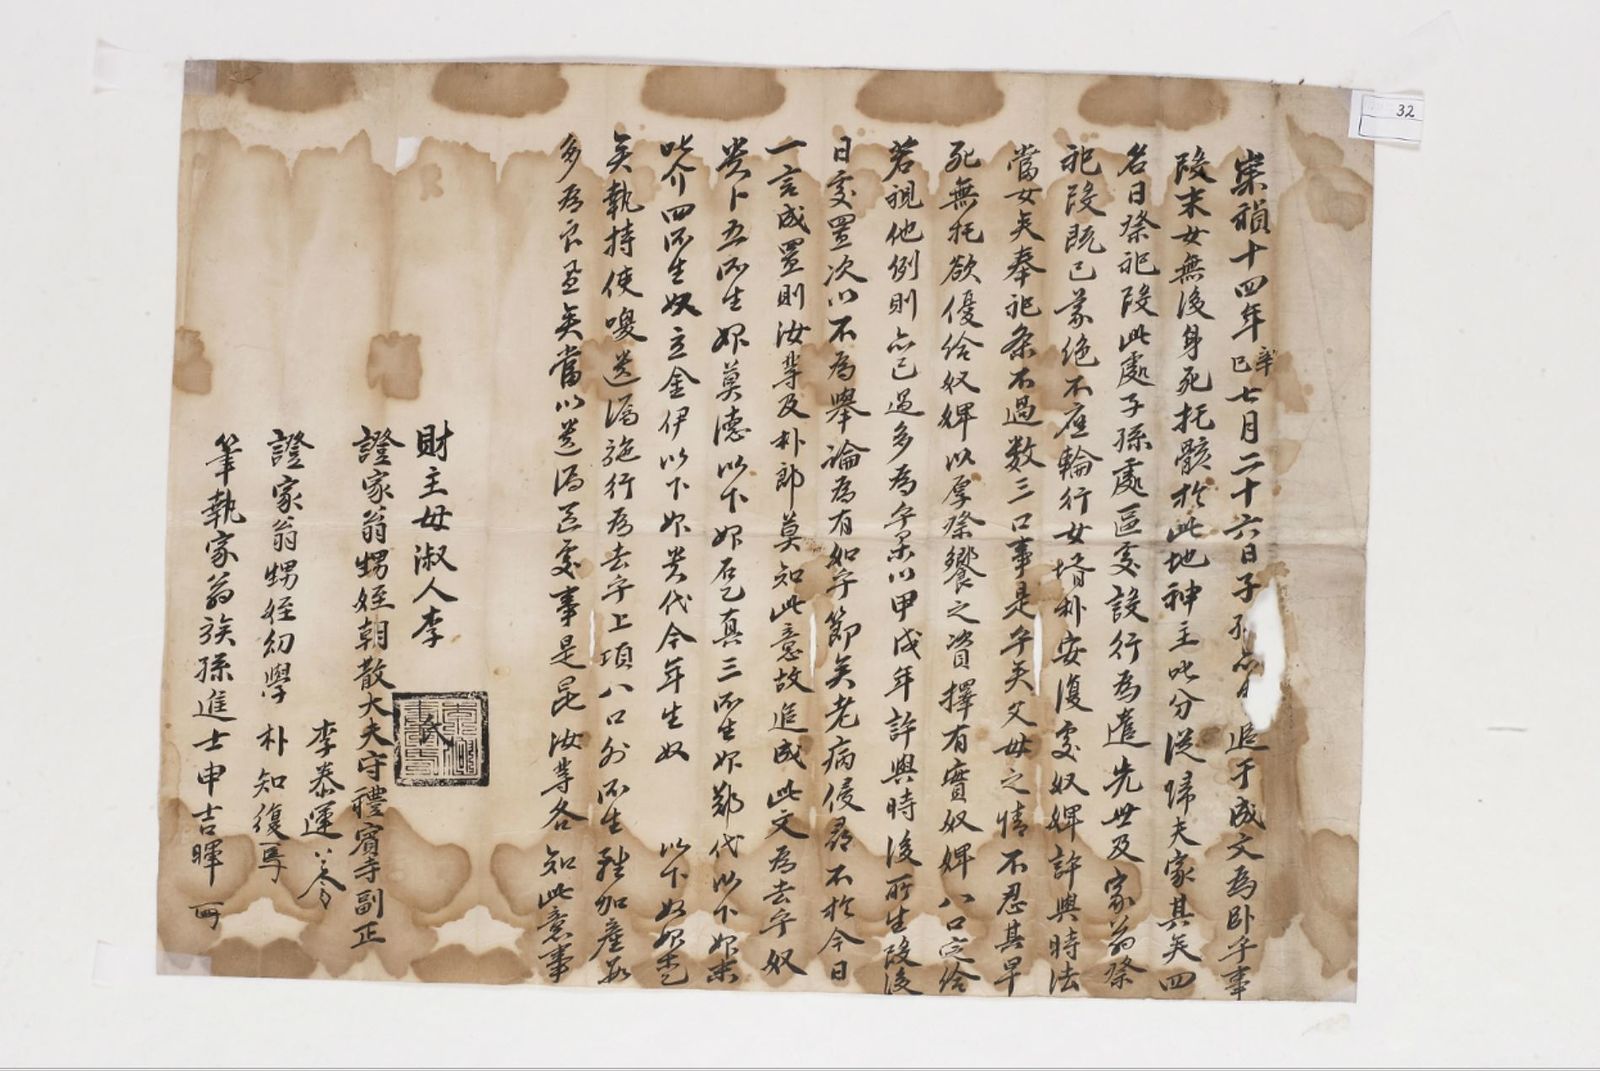 崇禎十四年辛巳七月二十六日子孫亦中追于成文爲卧乎事
段末女無後身死托骸於此地神主叱分從歸夫家其矣四
名日祭祀段此處子孫處區處設行爲遣先世及家翁祭
祀段旣已蒙絶不應輪行女壻朴安復處奴婢許與時法
當女矣奉祀条不過数三口事是乎矣父母之情不忍其早
死無托欲優給奴婢以厚祭饗之資擇有實奴婢八口定給
若視他例則亦已過多爲乎柔以甲戌年許與時後所生段後
日處置次以不爲擧論爲有如乎節矣老病侵尋不於今日
一言成置則汝等及朴郎莫知此意故追成此文爲去乎奴
卜五所生婢莫德以下婢石乙眞三所生婢鄭代以下婢末
叱介四所生奴立金伊以下婢代今年生奴 以下奴婢
矣執持使喚遺漏施行爲去乎上項八口外所生雖加産
多爲良置矣當以遺漏區處事是昆汝等各知此意事
財主母淑人李
證家翁甥姪朝散大夫守禮賓寺副正
李泰運
證家翁甥姪幼學 朴知復
筆執家翁族孫進士申吉暉
32